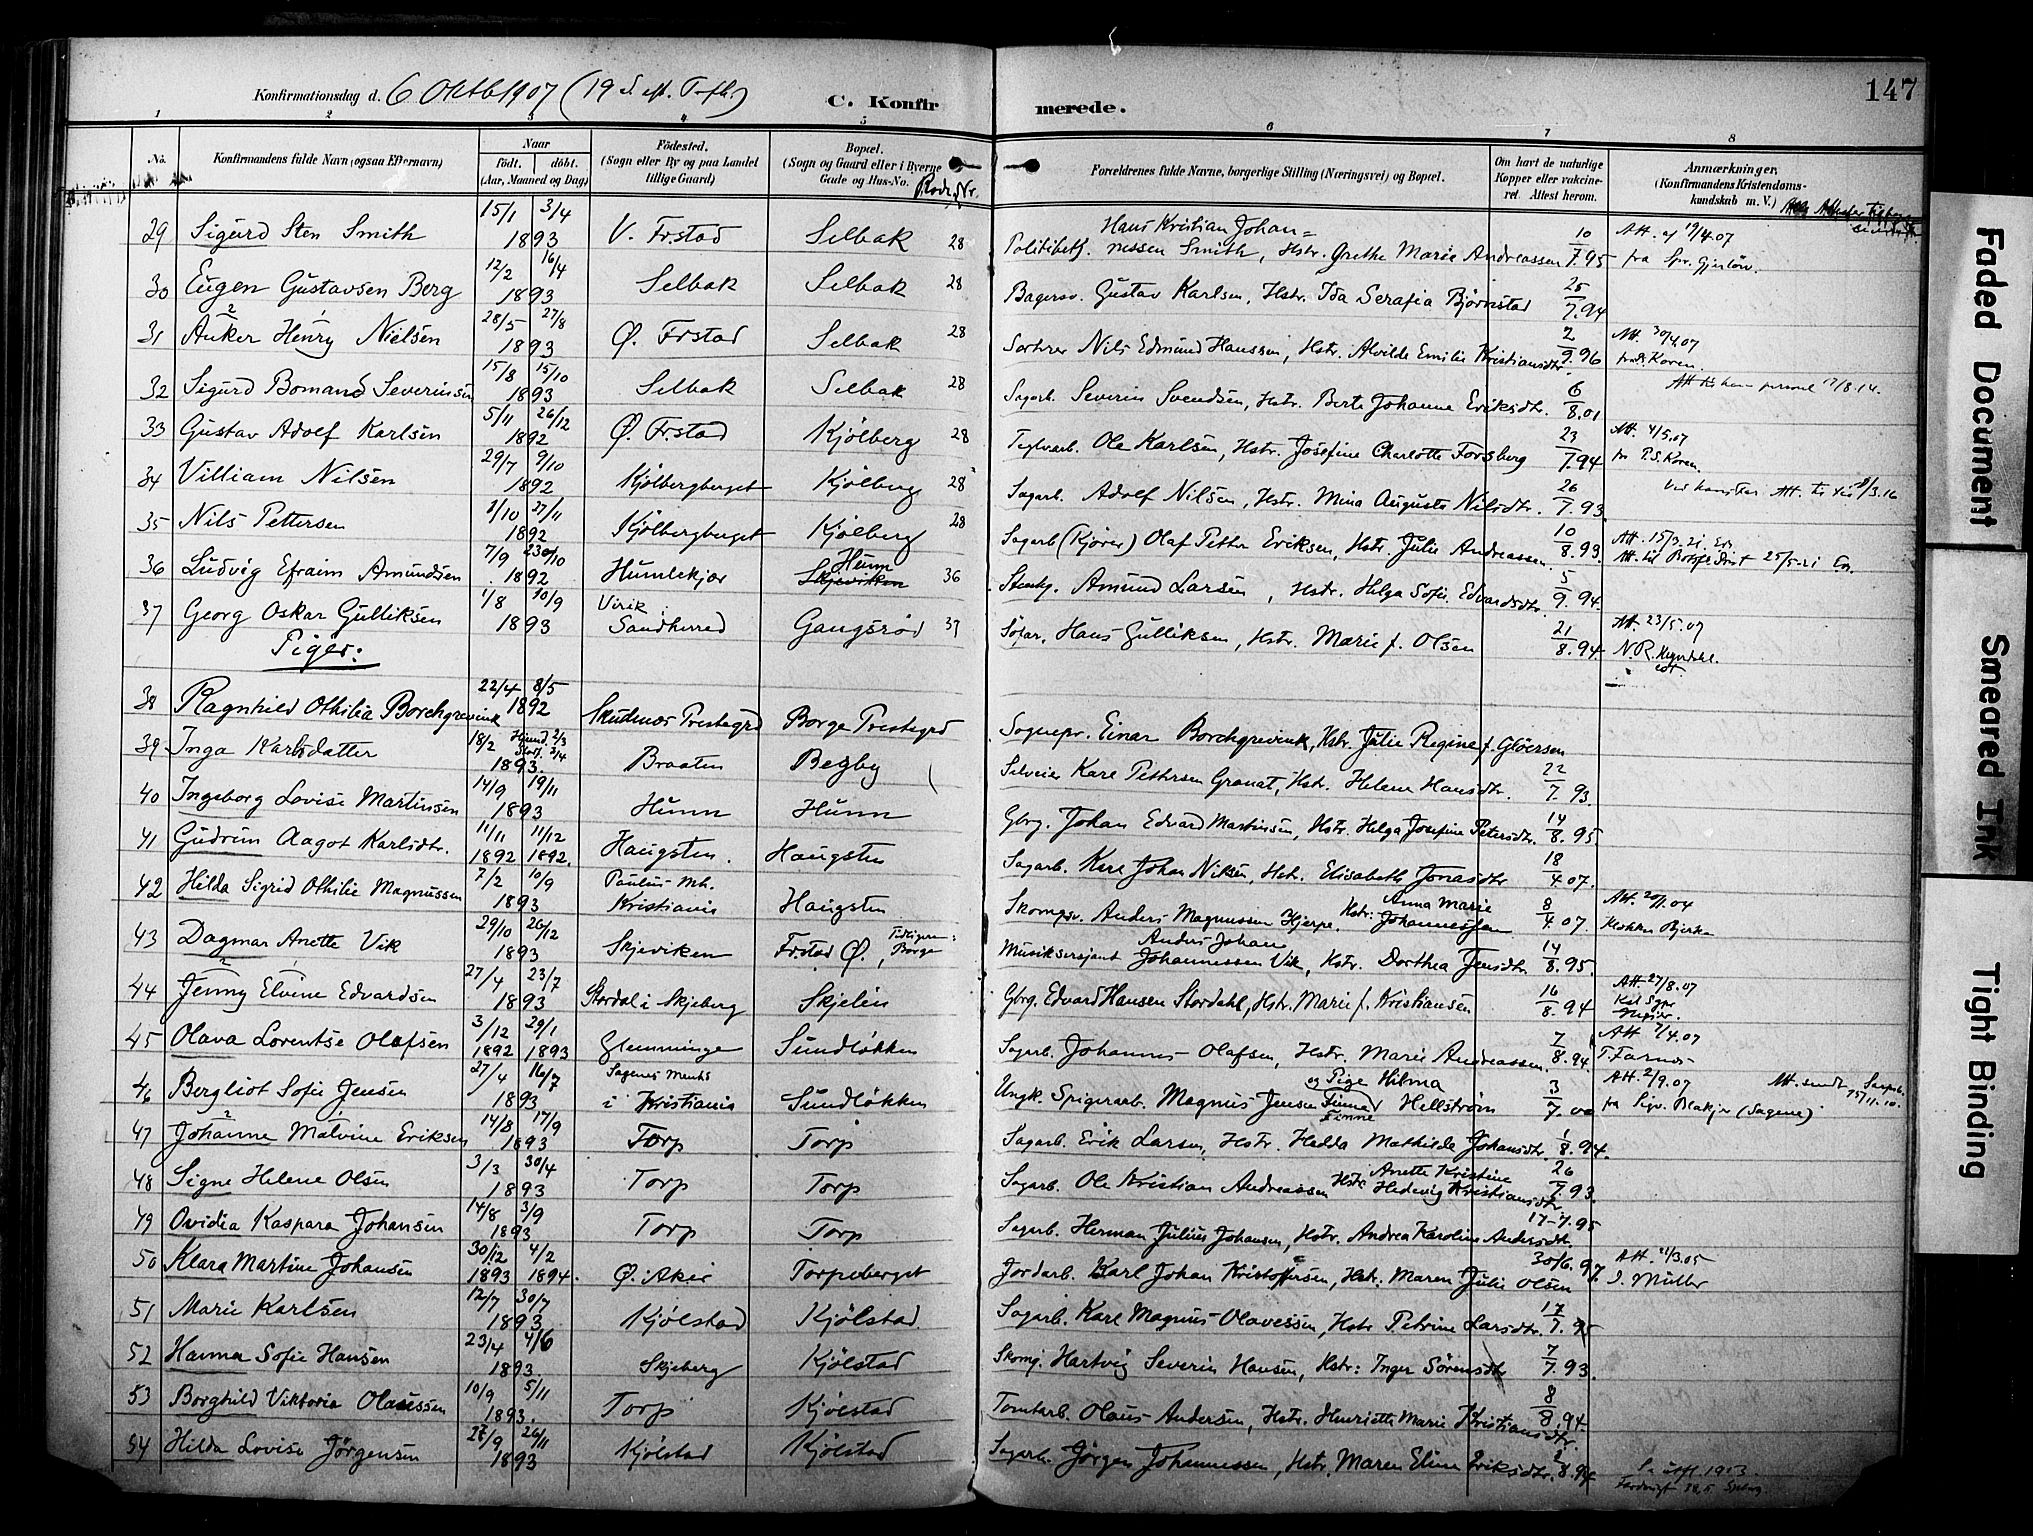 147
Konfirmationsdag d. 6 Oktb 1907 (19 S. ef. Trefh.)
C. Konfirmerede.
1 2 3 4 5 6 7 8
No. Konfirmandens fulde Navn (ogsaa Efternavn) Naar født. døbt. (Aar, Maaned og Dag) Fødested. (Sogn eller By og paa Landet tillige Gaard) Bopæl. (Sogn og Gaard eller i Byerne Gade og Hus-No. Rode Nr. Forældrenes fulde Navne, borgerlige Stilling (Næringsvei) og Bopæl. Om havt de naturlige Kopper eller vakcineret. Attest herom. Anmærkninger, (Konfirmandens Kristendomskundskab m. V.)
29 Sigurd Sten Smith 15/1 3/4 1893 V. Fr.stad Selbak 28 Politibetj. Hans Kristian Johannessen Smith, Hstr. Grethe Marie Andreassen 10/7.95 Att. af 19/4.07 fra Spr. Gjerløw.
30 Eugen Gustavsen Berg 12/2 16/4 1893 Selbak Selbak 28 Bagersv. Gustav Karlsen, Hstr. Ida Serafia Bjørnstad 25/7.94
31 Anker Henry Nielsen 28/5 27/8 1893 Ø. Frstad Selbak 28 Sorterer Nils Edmund Hanssen, Hstr. Alvilde Emilie Kristiansdtr. 2/9.96 Att. 30/4.07 Koren.
32 Sigurd Bomand Severinsen 15/8 15/10 1893 Selbak Selbak 28 Sagarb. Severin Svendsen, Hstr. Berte Johanne Eriksdtr. 6/8.01 Att 17/8.14.
33 Gustav Adolf Karlsen 5/11 26/12 1892 Ø. Fr.stad Kjölberg 28 Teglvarb. Ole Karlsen, Hstr. Josefine Charlotte Forsberg 23/7.94 Att. 4/5.07 fra P.S. Koren.
34 Villiam Nilsen 29/7 9/10 1892 Kjölbergberget Kjölberg 28 Sagarb. Adolf Nilsen, Hstr. Mina Augusta Nilsdtr. 26/7.93. Att.
35 Nils Pettersen 1/10 27/11 1892 Kjölbergberget Kjölberg 28 Sagarb (Kjører) Olaf Petter Eriksen, Hstr. Julie Andreassen. 10/8.93. Att. 15/3.21
36 Ludvig Efraim Amundsen 7/9 1892 Humlekjær Hunn Skjeviken 36 Stenhg. Amund Larsen, Hstr. Helga Sofie Edvardsdtr. 5/9.94. Att. til 25/5-21
37 Georg Oskar Gulliksen 1/8 10/9 1893 Virik Sandherred Gangsrød 37 Sjöfar. Hans Gulliksen, Hstr. Marie f. Olsen 21/8.94 Att. 23/5.07 N.R.
Piger:
38 Ragnhild Othilia Borchgrevink 22/4 8/5 1892 Skudenes Prestegrd Borge Prestegrd Sognepr. Einar Borchgrevink, Hstr. Julie Regine f. Gløersen
39 Inga Karlsdatter 18/2 Hjemd. 2/3 Stadf. 2/4 1893. Braaten Begby Selveier Karl Pettersen Granat, Hstr. Helene Hansdtr. 22/7.93.
40 Ingeborg Lovise Martinsen 14/9 19/11 1893 Hunn Hunn Gbrg. Johan Edvard Martinsen, Hstr. Helga Josefine Petersdtr. 14/8.95.
41 Gudrun Aagot Karlsdtr. 11/11 1892 11/12 1892. Haugsten. Haugsten Sagarb. Karl Johan Nilsen, Hstr. Elisabeth Jonasdtr 18/4 07.
42 Hilda Sigrid Othilie Magnussen 7/2 10/9 1893 Paulus Mh. Kristiania Haugsten Skomsv. Anders Magnussen Hjerpe. Hstr: Anna Marie Johannessen 8/4.07. Att. 04
43 Dagmar Anette Vik 29/10 26/12 1893 Skjeviken Frstad Ø., Tidligere: Borge Musiksersjant Anders Johan Johannessen Vik, Hstr. Dorthea Jensdtr 14/8.95.
44 Jenny Elvine Edvardsen 27/4 23/7 1893 Stordal i Skjeberg Skjelin Gbrg. Edvard Hansen Stordahl, Hstr. Marie f. Kristiansen 16/8.94 Att 27/8.07
45 Olava Lorentse Olafsen 3/12 1892 29/1 1893 Glemminge Sundløkken Sagarb. Johannes Olafsen, Hstr. Marie Andreassen. 7/8.94 Att 7/4.07
46 Bergliot Sofie Jensen 27/4 16/7 1893 Sagenes Menhs i Kristiania Sundløkken Ungk. Spigerarb. Magnus Jensen og Pige Hilma Hellström 3/7.00 Att. 2/9.07 fra Sigv. Blakjer (Sagene). Att. sendt Sarpsb. 15/11.10.
47 Johanne Malvine Eriksen 14/8 17/9 1893 Torp Torp Sagarb. Erik Larsen, Hstr. Hedda Mathilde Johansdtr. 1/8.94.
48 Signe Helene Olsen 3/3 30/4 1893 Torp Torp Sagarb. Ole Kristian Andreassen Hstr. Anette Kristine Hedevig Kristiansdtr. 26/7.93.
49 Ovidia Kaspara Johansen 14/8 3/9 1893 Torp Torp Sagarb. Herman Julius Johansen, Hstr. Andrea Karoline Andersdtr. 17-7.95
50 Klara Martine Johansen 30/12 1893 4/2 1894. Ø. Aker Torpeberget Jordarb. Karl Johan Kristoffersen, Hstr: Maren Julie Olsen 30/6.97. Att. 21/3.05 J. Müller
51 Marie Karlsen 12/7 30/7 1893 Kjölstad Kjölstad Sagarb. Karl Magnus Olavessen, Hstr Petrine Larsdtr. 17/7.95
52 Hanna Sofie Hansen 23/4 4/6 1893 Skjeberg Kjölstad Skomj. Hartvig Severin Hansen, Hstr: Inger Sörensdtr 7/7.93.
53 Borghild Viktoria Olaussen 10/9 5/11 1893. Torp Kjölstad Tomtarb. Olaus Andersen, Hstr. Henriette Marie Kristiansdtr. 8/8.94.
54 Hilda Lovise Jørgensen 27/9 26/11 1893 Kjölstad Kjölstad Sagarb. Jørgen Johannessen, Hstr. Maren Eline Eriksdtr. 2/8.94
Faded Document
Smeared Ink
Tight Binding